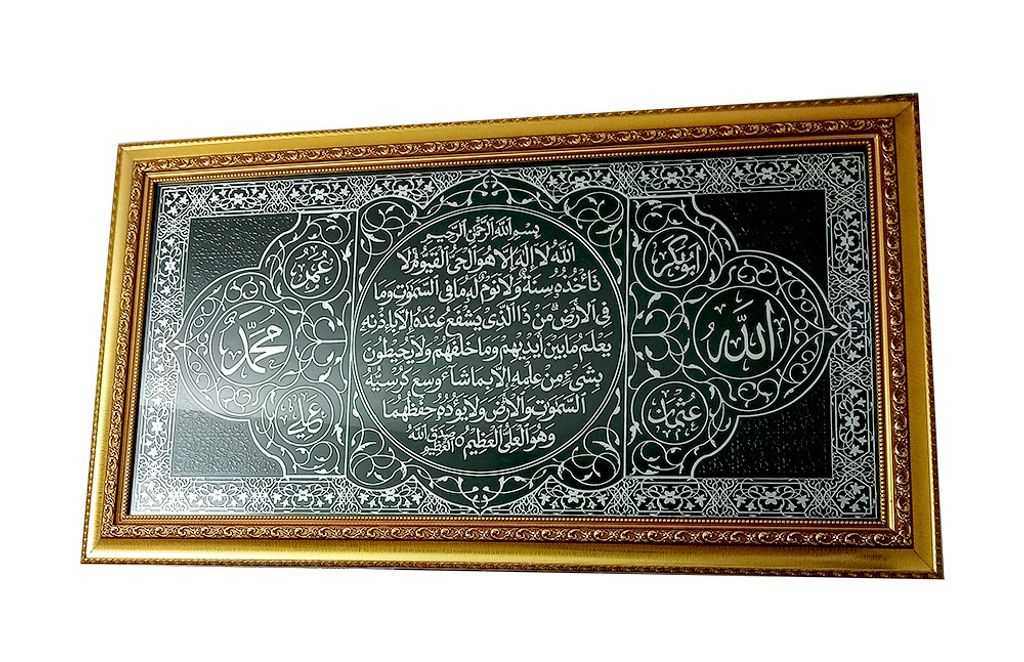 بِسْمِ اللّٰهِ الرَّحْمٰنِ الرَّحِيمِ
اَللّٰهُ لَا اِلٰهَ اِلَّا هُوَ الْحَيُّ الْقَيُّومُ لَا
تَأْخُذُهُ سِنَةٌ وَلَا نَوْمٌ لَهُ مَا فِى السَّمٰوَاتِ وَمَا
فِى الْاَرْضِ مَنْ ذَا الَّذِى يَشْفَعُ عِنْدَهُ اِلَّا بِاِذْنِهِ
يَعْلَمُ مَا بَيْنَ اَيْدِيهِمْ وَمَا خَلْفَهُمْ وَلَا يُحِيطُونَ
بِشَىْءٍ مِنْ عِلْمِهِ اِلَّا بِمَا شَاءَ وَسِعَ كُرْسِيُّهُ
السَّمٰوَاتِ وَالْاَرْضَ وَلَا يَؤُدُهُ حِفْظُهُمَا
وَهُوَ الْعَلِىُّ الْعَظِيمُ صَدَقَ اللّٰهُ الْعَظِيمُ
اَبُوبَكَرْ
اللّٰه
عُثْمَان
عُمَر
مُحَمَّد
عَلِى